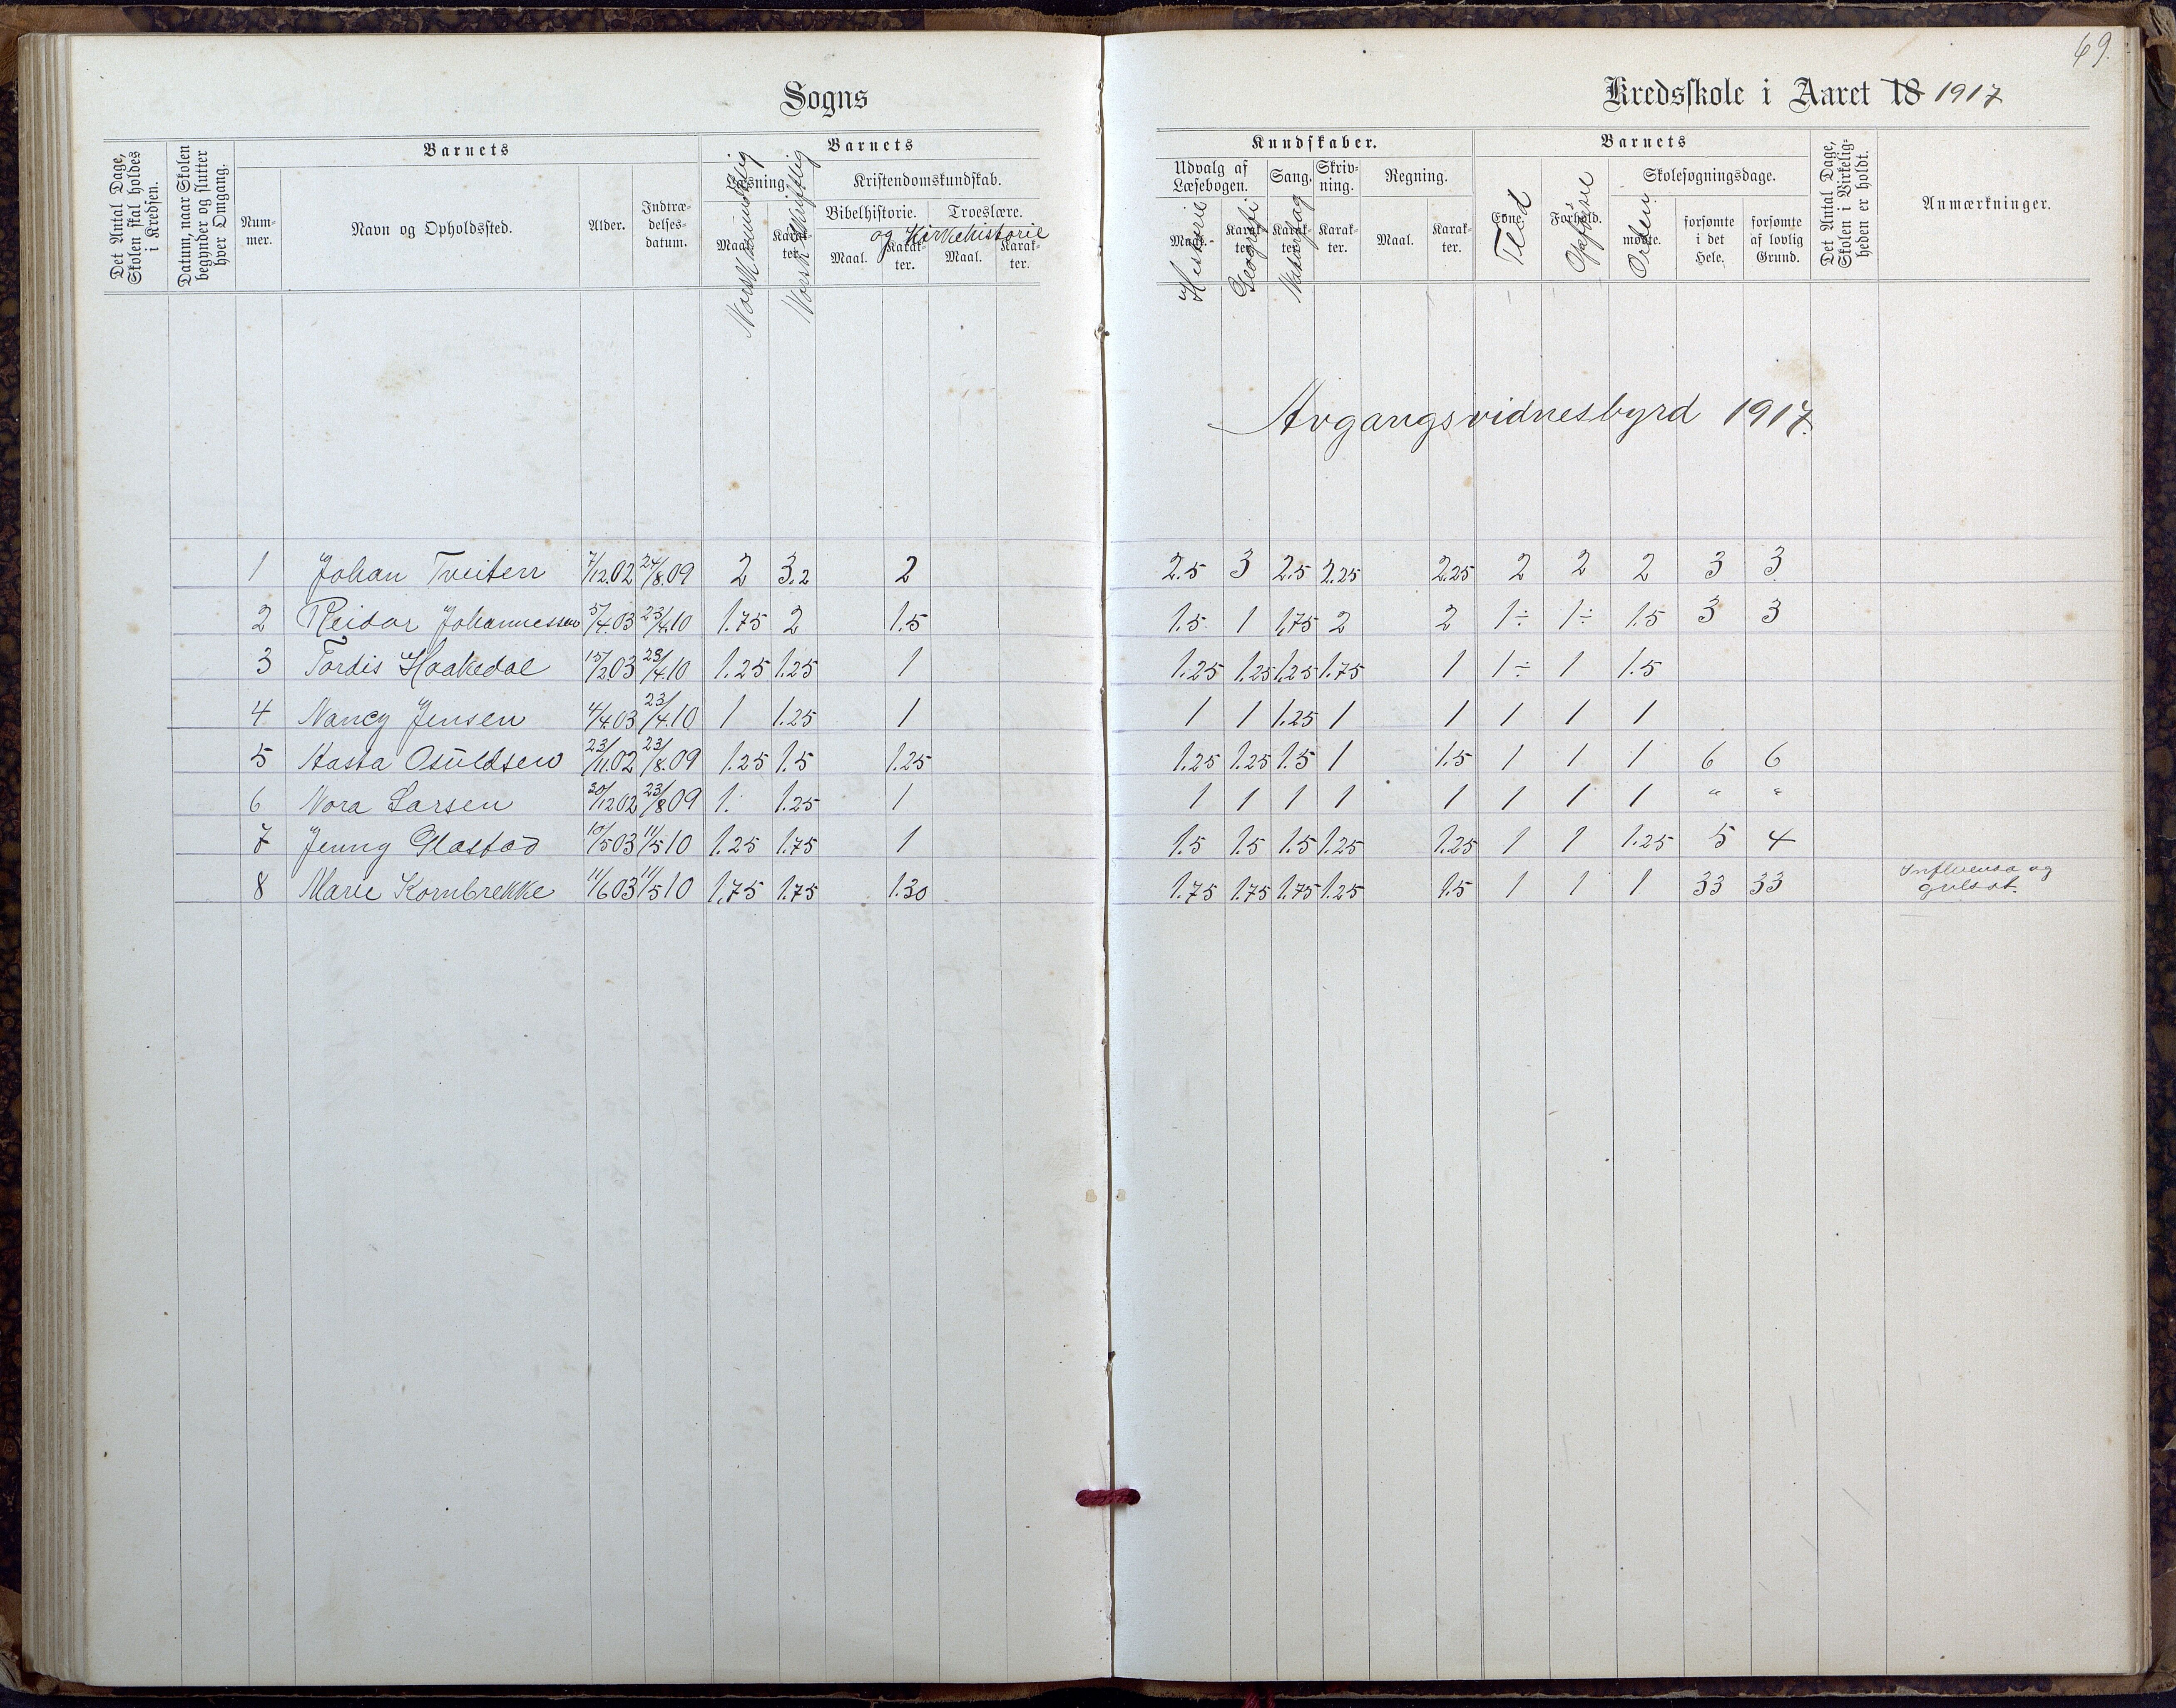 69.
Sogns
Kredsskole i Aaret 18 1917
Det Antal Dage, Skolen skal holdes i Kredsen.
Datum, naar Skolen begynder og slutter hver Omgang.
Barnets
Num-mer.
Navn og Opholdssted.
Alder.
Indtræ-delses-datum.
Barnets
Læsning.
Maal.
Karak-ter.
Norsk mundtlig
Norsk skriftlig
Kristendomskundskab.
Bibelhistorie.
Troeslære.
og Kirkehistorie
Maal.
Karak-ter.
Maal.
Karak-ter.
Kundskaber.
Udvalg af Læsebogen.
Sang.
Skriv-ning.
Regning.
Maal.
Karak-ter.
Karak-ter.
Karak-ter.
Maal.
Karak-ter.
Historie
Geografi
Naturfag
Barnets
Evne.
Forhold.
Flid
Opførsel
Orden
Skolesøgningsdage.
mødte.
forsømte i det Hele.
forsømte af lovlig Grund.
Det Antal Dage, Skolen i Virkelig-heden er holdt.
Anmærkninger.
Avgangsvidnesbyrd 1917.
1 Johan Tveiten 7/12.02 24/8.09 2 3.2 2 2.5 3 2.5 2.25 2.25 2 2 2 3 3
2 Reidar Johannessen 5/4.03 23/4.10 1.75 2 1.5 1.5 1 1.75 2 2 1÷ 1÷ 1.5 3 3
3 Tordis Haakedal 15/2.03 23/4.10 1.25 1.25 1 1.25 1.25 1.25 1.75 1 1÷ 1 1.5
4 Nancy Jensen 4/4.03 23/4.10 1 1.25 1 1 1 1.25 1 1 1 1 1
5 Aasta Osuldsen 23/11.02 23/8.09 1.25 1.5 1.25 1.25 1.25 1.5 1 1.5 1 1 1 6 6
6 Nora Larsen 30/12 02 23/8 09 1. 1.25 1 1 1 1 1 1 1 1 1 " "
7 Jenny Glastad 10/5 03 11/5 10 1.25 1.75 1 1.5 1.5 1.5 1.25 1.25 1 1 1.25 5 4
8 Marie Kornbrekke 11/6 03 11/5 10 1.75 1.75 1.30 1.75 1.75 1.75 1.25 1.5 1 1 1 33 33 Influensa og
gulsot.